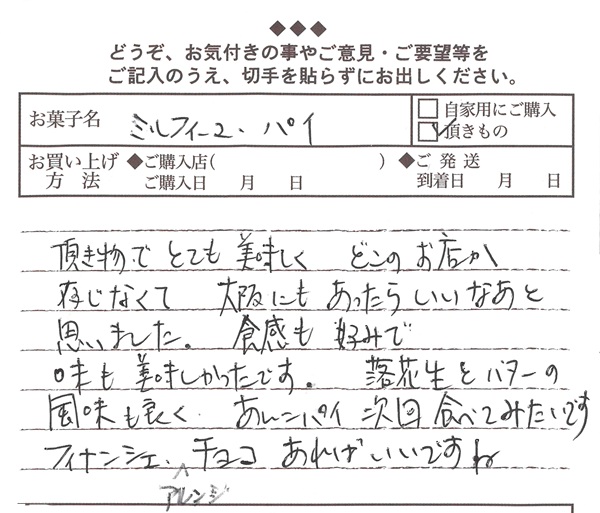 ◆◆◆
どうぞ、お気付きの事やご意見・ご要望等を
ご記入のうえ、切手を貼らずにお出しください。
お菓子名 ミルフィーユ・パイ □自家用にご購入
☑頂きもの
お買い上げ ◆ご購入店( ) ◆ご発送
方法 ご購入日 月 日 到着日 月 日
頂き物で とても 美味しく どこのお店か
存じなくて 大阪にも あったら いいなあと
思いました。 食感も 好みで
味も 美味しかったです。 落花生とバターの
風味も良く あんこパイ 次回 食べてみたいです
フィナンシェ、チョコ あればいいですね
アレンジ